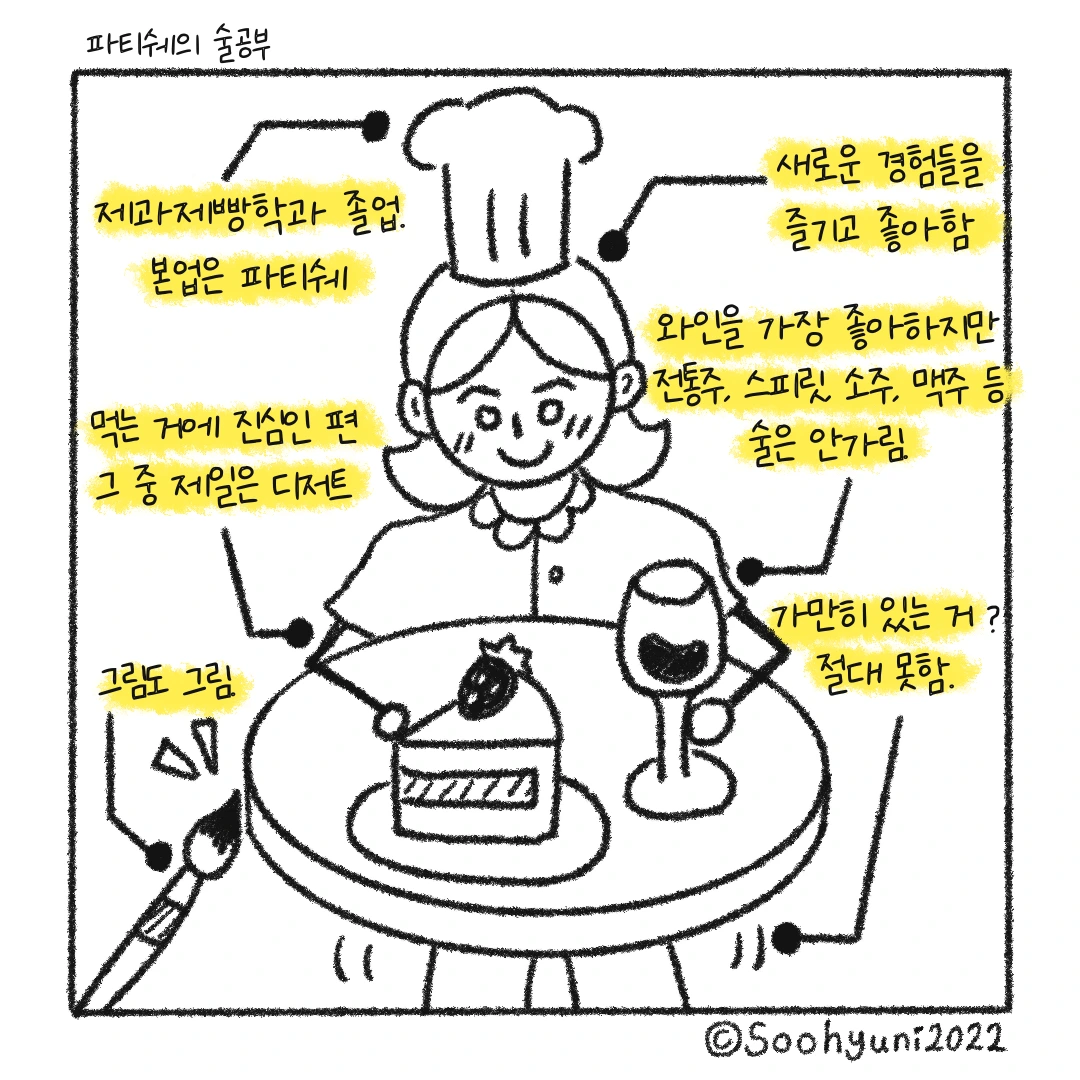 파티쉐의 술공부
제과제빵학과 졸업.
본업은 파티쉐
새로운 경험들을
즐기고 좋아함
와인을 가장 좋아하지만
전통주, 스피릿, 소주, 맥주 등
술은 안가림.
먹는 거에 진심인 편
그 중 제일은 디저트
가만히 있는 거?
절대 못함.
그림도 그림.
©Soohyuni2022